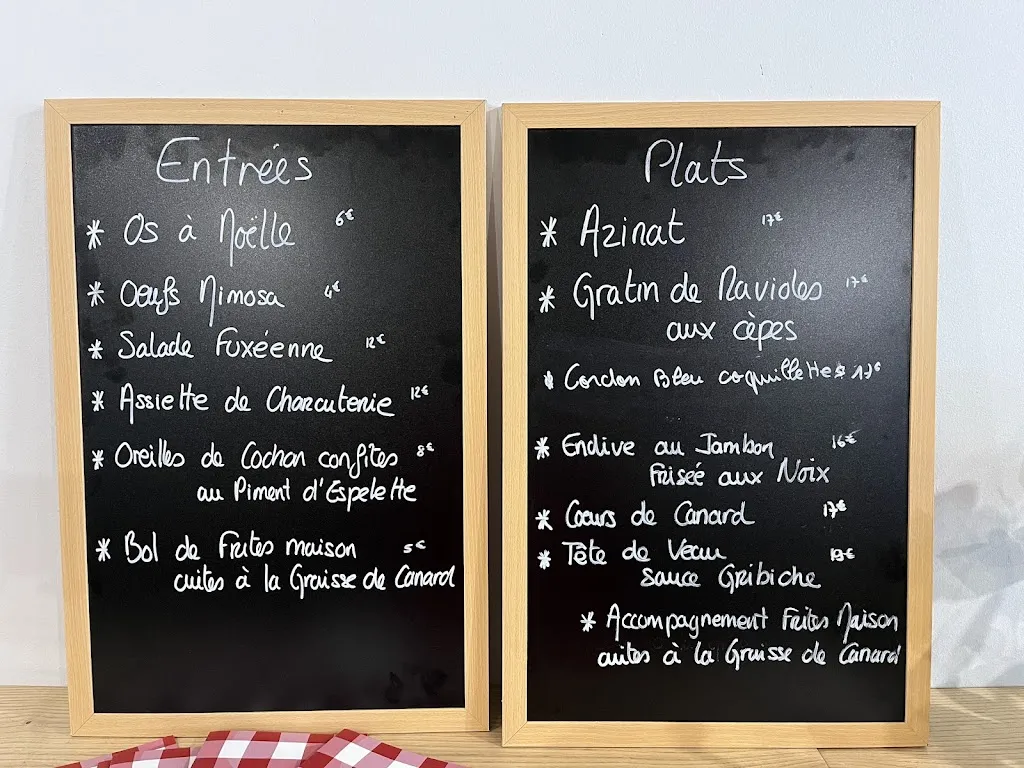 Entrées
* Os à Moëlle 6€
* Oeufs Mimosa 4€
* Salade Fuxéenne 12€
* Assiette de Charcuterie 12€
* Oreilles de Cochon confites 8€
au Piment d'Espelette
* Bol de Frites maison 5€
cuites à la Graisse de Canard
Plats
* Azinat 17€
* Gratin de Ravioles 17€
aux cèpes
* Cordon Bleu coquillettes 17€
* Endive au Jambon 16€
Frisée aux Noix
* Coeurs de Canard 17€
* Tête de Veau
sauce Gribiche
* Accompagnement Frites Maison
cuites à la Graisse de Canard